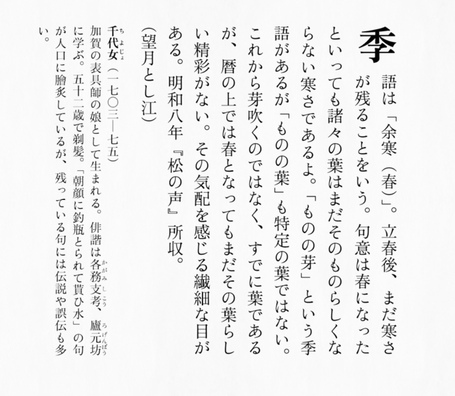 季語は「余寒（春）」。立春後、まだ寒さ
が残ることをいう。句意は春になった
といっても諸々の葉はまだそのものらしくな
らない寒さであるよ。「ものの芽」という季
語があるが「ものの葉」も特定の葉ではない。
これから芽吹くのではなく、すでに葉である
が、暦の上では春となってもまだその葉らし
い精彩がない。その気配を感じる繊細な目が
ある。明和八年『松の声』所収。
（望月とし江）
千代女（一七〇三―七五）
ちよじょ
加賀の表具師の娘として生まれる。俳諧は各務支考、廬元坊
かがみしこう
ろげんぼう
に学ぶ。五十二歳で剃髪。「朝顔に釣瓶とられて貰ひ水」の句
が人口に膾炙しているが、残っている句には伝説や誤伝も多
い。